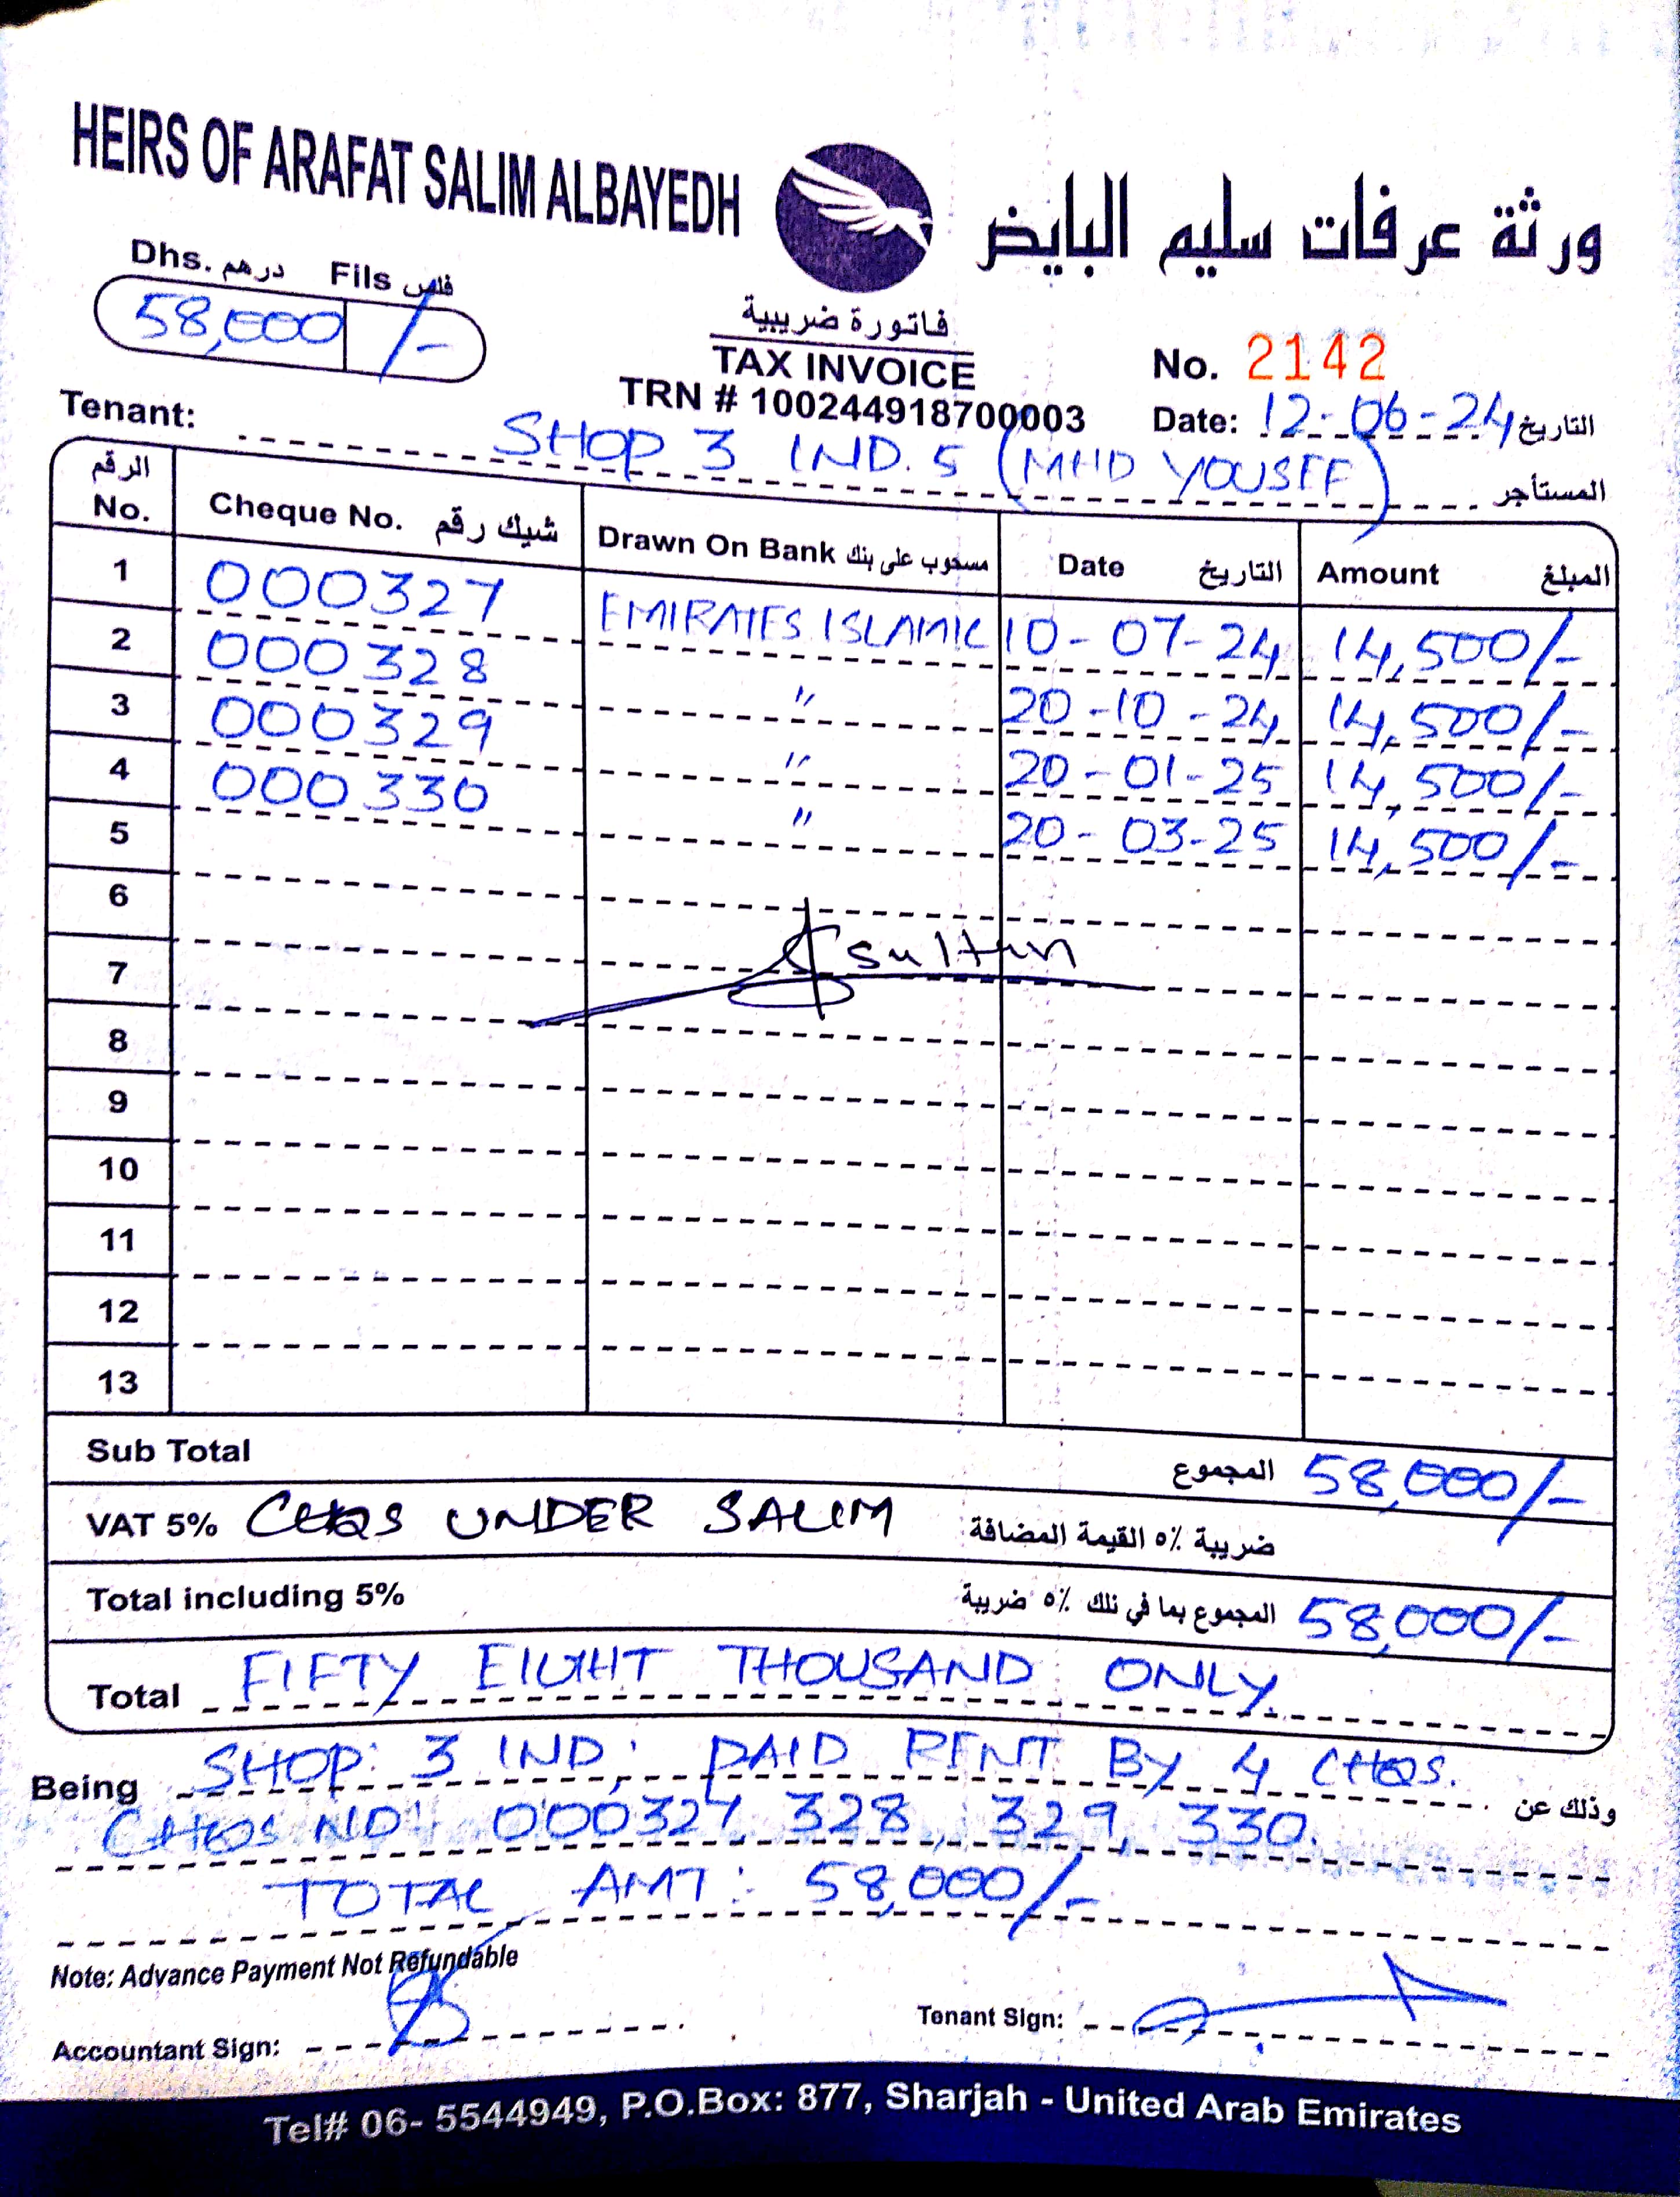 HEIRS OF ARAFAT SALIM ALBAYEDH
ورثة عرفات سليم البايض
Dhs. درهم Fils فلس
58,000 /-
فاتورة ضريبية
TAX INVOICE
TRN # 100244918700003
No. 2142
Date: 12-06-24 التاريخ
Tenant: SHOP 3 IND. 5 (MHD YOUSEF) المستأجر
الرقم No. Cheque No. شيك رقم Drawn On Bank مسحوب على بنك Date التاريخ Amount المبلغ
1 000327 EMIRATES ISLAMIC 10-07-24 14,500/-
2 000328 " 20-10-24 14,500/-
3 000329 " 20-01-25 14,500/-
4 000330 " 20-03-25 14,500/-
5
6
sultan
7
8
9
10
11
12
13
Sub Total المجموع 58,000/-
VAT 5% CHQS UNDER SALIM ضريبة ٥٪ القيمة المضافة
Total including 5% المجموع بما في ذلك ٥٪ ضريبة 58,000/-
Total FIFTY EIGHT THOUSAND ONLY.
Being SHOP: 3 IND; PAID RENT BY 4 CHQS. وذلك عن
CHQS NO: 000327, 328, 329, 330.
TOTAL AMT: 58,000/-
Note: Advance Payment Not Refundable
Accountant Sign:
Tenant Sign:
Tel# 06- 5544949, P.O.Box: 877, Sharjah - United Arab Emirates